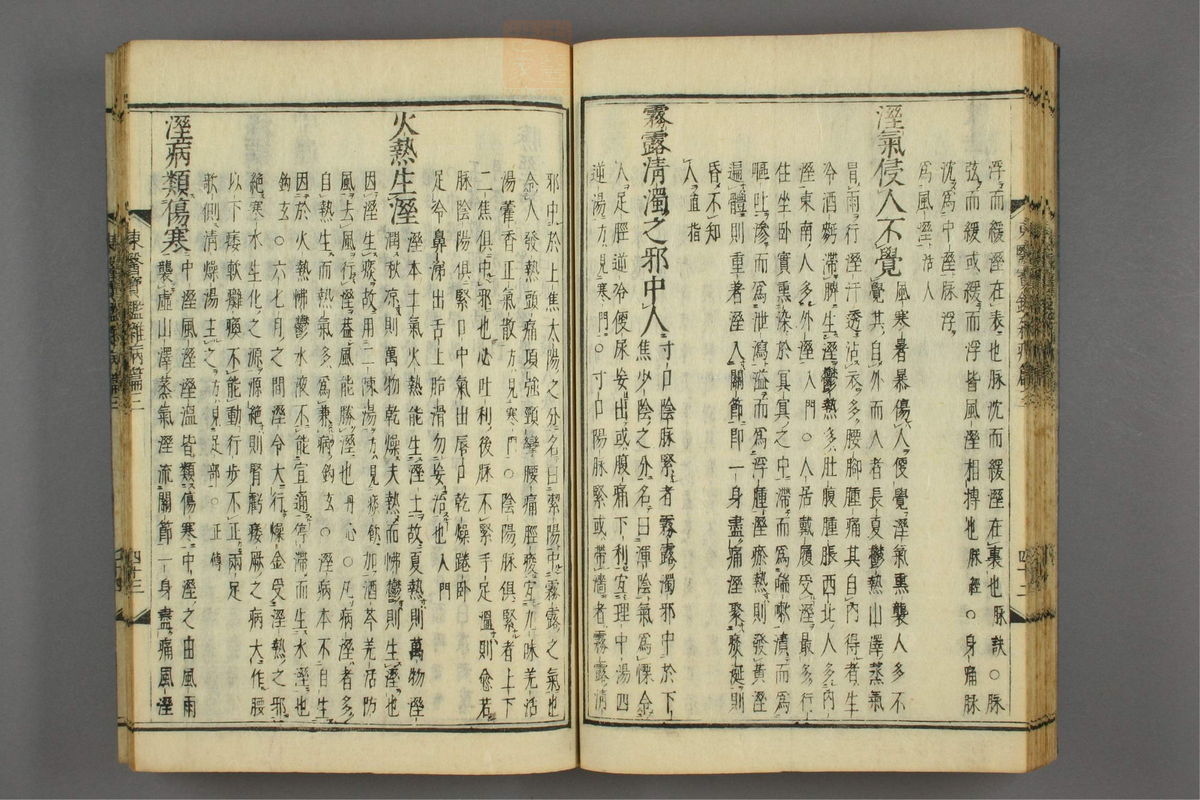 浮而緩溼在表也脉沈而緩溼在裏也脉訣○脉
弦而緩或緩而浮皆風溼相搏也脉經○身痛脉
沈爲中溼脉浮
爲風溼活人
溼氣侵人不覺風寒暑暴傷人便覺溼氣熏襲人多不
覺其自外而入者長夏鬱熱山澤蒸氣
冒雨行溼汗透沾衣多腰脚腫痛其自內得者生
冷酒麪滯脾生溼鬱熱多肚腹腫脹西北人多內
溼東南人多外溼入門○人居戴履受溼最多行
住坐卧實熏染於冥冥之中滯而爲喘嗽漬而爲
嘔吐滲而爲泄瀉溢而爲浮腫溼瘀熱則發黃溼
遍體則重着溼入關節即一身盡痛溼聚痰涎則
昏不知
人直指
霧露清濁之邪中人寸口陰脉緊者霧露濁邪中於下
焦少陰之分名曰渾陰氣爲慄令
人足脛逆冷便尿妄出或腹痛下利宜理中湯四
逆湯方見寒門○寸口陽脉緊或帶濇者霧露清
邪中於上焦太陽之分名曰潔陽中霧露之氣也
令人發熱頭痛項強頸攣腰痛脛痠宜九味羌活
湯藿香正氣散方見寒門○陰陽脉俱緊者上下
二焦俱中邪也必吐利後脉不緊手足溫則愈若
脉陰陽俱緊口中氣出唇口乾燥踡卧
足冷鼻涕出舌上胎滑勿妄治也入門
火熱生溼溼本土氣火熱能生溼土故夏熱則萬物溼
潤秋凉則萬物乾燥夫熱而怫鬱則生溼也
因溼生痰故用二陳湯方見痰飮加酒芩羌活防
風去風行溼盖風能勝溼也丹心○凡病溼者多
自熱生而熱氣多爲兼病鈎玄○溼病本不自生
因於火熱怫鬱水液不能宣通停滯而生水溼也
鈎玄○六七月之間溼令大行燥金受溼熱之邪
絶寒水生化之源源絶則腎虧痿厥之病大作腰
以下痿軟癱瘓不能動行步不正兩足
欹側清燥湯主之方見足部○正傳
溼病類傷寒中溼風溼溼溫皆類傷寒中溼之由風雨
襲虛山澤蒸氣溼流關節一身盡痛風溼
東醫寶鑑雜病篇三
四十三